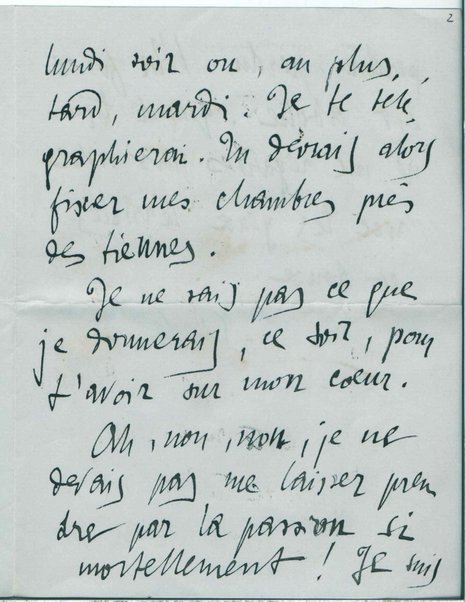 2
lundi soir ou, au plus
tard, mardi. Je te télé,
graphierai. Tu devrais alors
fixer mes chambres près
des tiennes.
Je ne sais pas ce que
je donnerais, ce soir, pour
t'avoir sur mon cœur.
Ah, non, non, je ne
devais pas me laisser pren
dre par la passion si
mortellement! Je suis